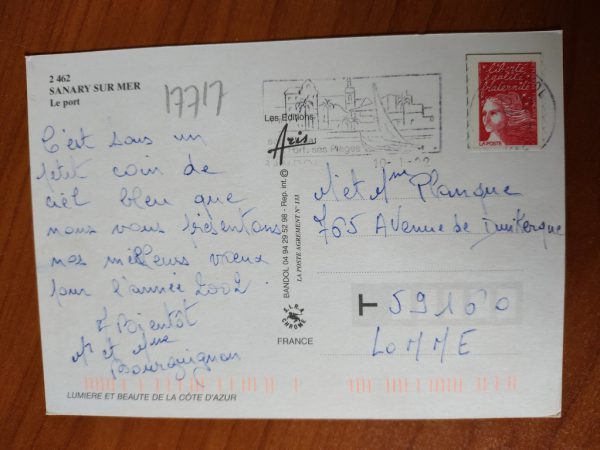 2 462
SANARY SUR MER
Le port
17717
C'est sous un
petit coin de
ciel bleu que
nous vous présentons
nos meilleurs vœux
pour l'année 2002.
A Bientôt
Mr et Mme
Bourguignon
LUMIERE ET BEAUTE DE LA CÔTE D'AZUR
Les Editions
Aris
BANDOL 04 94 29 52 98 - Rep. Int. ©
LA POSTE AGREMENT N° 133
CHROME
FRANCE
Port, ses Plages
liberté
égalité
fraternité
LA POSTE
Mr et Mme Planque
765 Avenue de Dunkerque
T 59160
LOMME